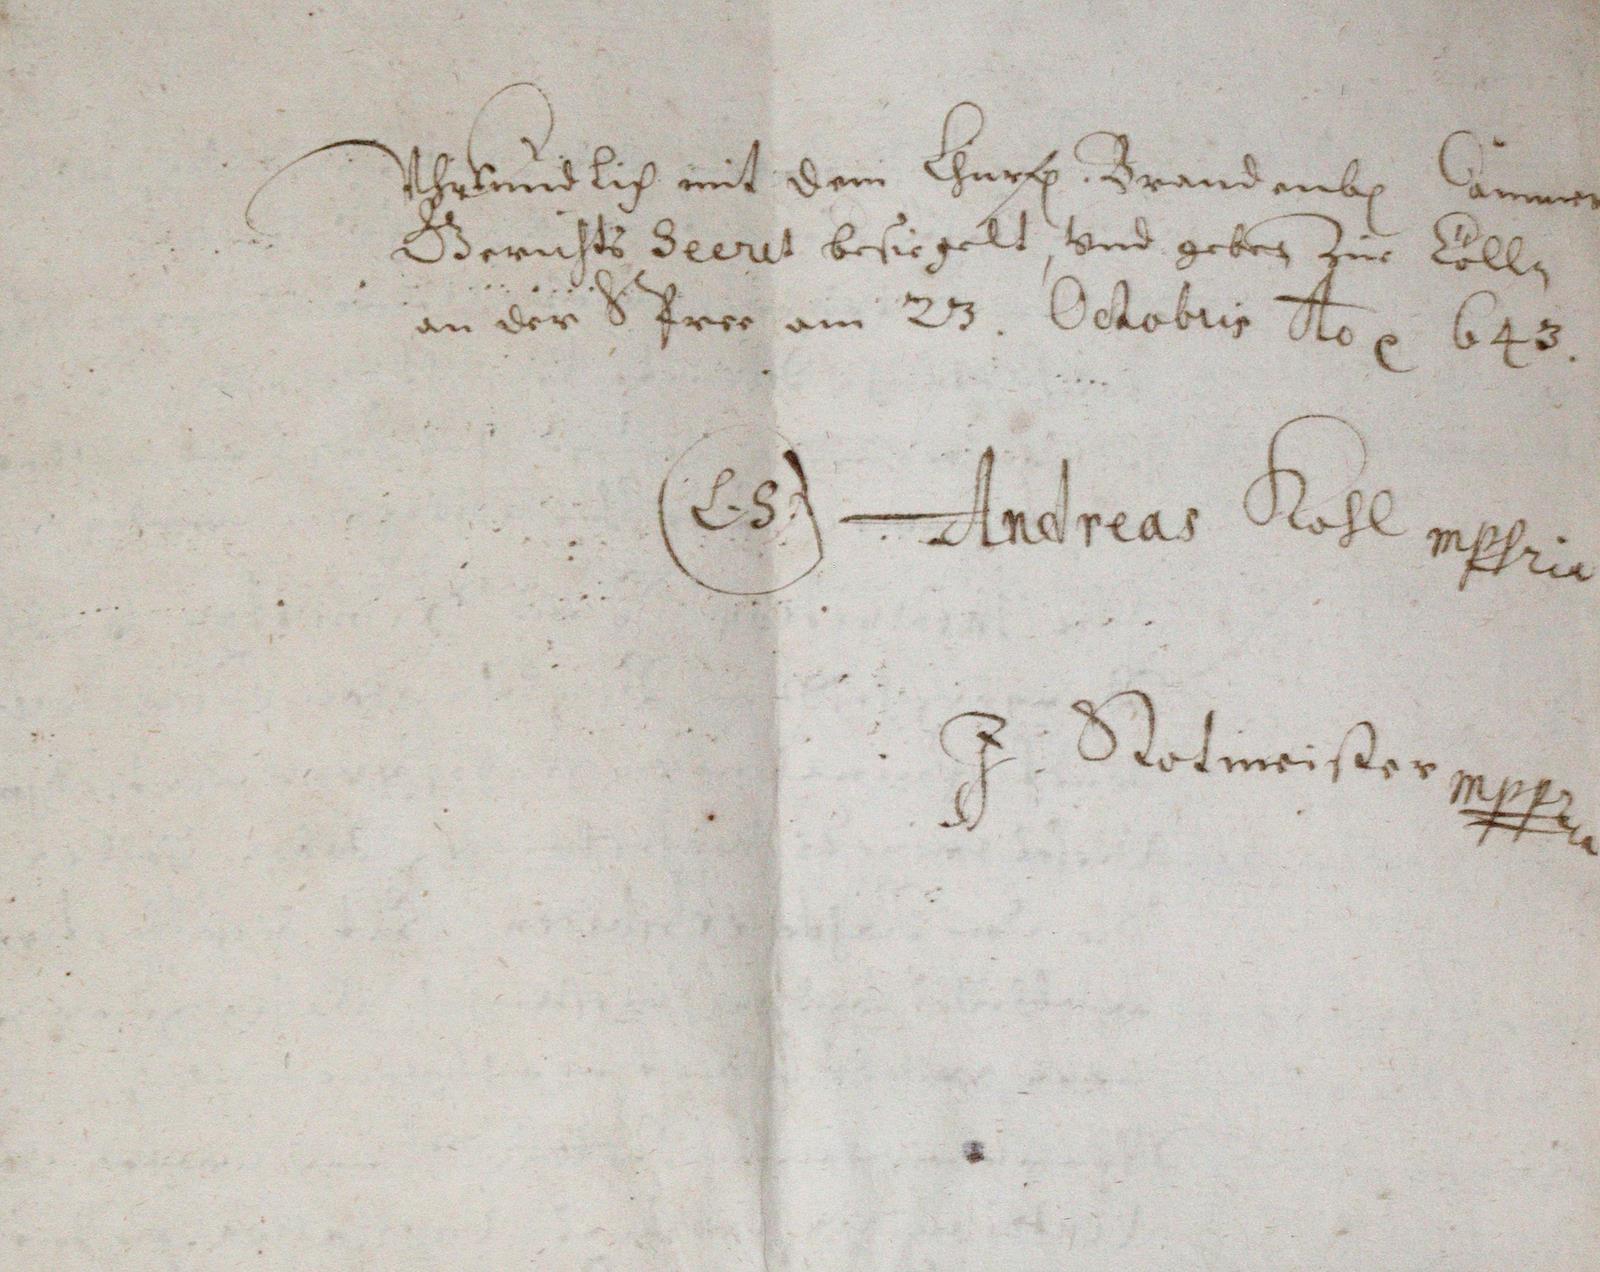 Uhrkundlich mit dem Churfl. Brandenb. Cammer
Gerichts Secret besiegelt, Vnd geben Zue Cölln
an der Spree am 23. Octobris Ao 643.
L.S. Andreas Kohl mppria
J. Rotmeister mppria